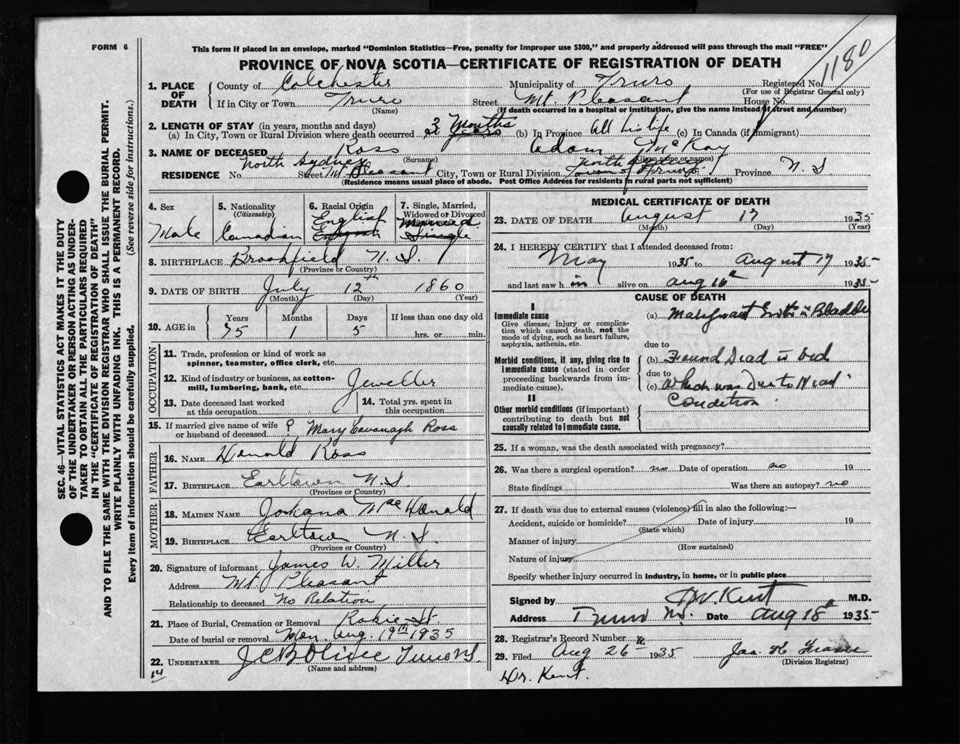 FORM 6
This form if placed in an envelope, marked "Dominion Statistics—Free, penalty for improper use $300," and properly addressed will pass through the mail "FREE"
PROVINCE OF NOVA SCOTIA—CERTIFICATE OF REGISTRATION OF DEATH
1180
1. PLACE OF DEATH County of Colchester Municipality of Truro Registered No.
(For use of Registrar General only)
If in City or Town Truro Street Mt. Pleasant House No.
(Name) (If death occurred in a hospital or institution, give the name instead of street and number)
2. LENGTH OF STAY (in years, months and days)
(a) In City, Town or Rural Division where death occurred 3 Months (b) In Province All his life (c) In Canada (if immigrant)
3. NAME OF DECEASED Ross Adam McKay
(Surname) (Given name or names)
RESIDENCE No. North Sydney Street Mt Pleasant City, Town or Rural Division Province N.S
(Residence means usual place of abode. Post Office Address for residents in rural parts not sufficient)
4. Sex Male
5. Nationality (Citizenship) Canadian
6. Racial Origin English
7. Single, Married, Widowed or Divorced Married Single
8. BIRTHPLACE Brookfield N.S.
(Province or Country)
9. DATE OF BIRTH July 12th 1860
(Month) (Day) (Year)
10. AGE in Years Months Days If less than one day old
75 1 5 hrs. or min.
OCCUPATION
11. Trade, profession or kind of work as spinner, teamster, office clerk, etc.
12. Kind of industry or business, as cotton-mill, lumbering, bank, etc. Jeweller
13. Date deceased last worked at this occupation
14. Total yrs. spent in this occupation
15. If married give name of wife or husband of deceased ? Mary Cavanagh Ross
FATHER
16. NAME Donald Ross
17. BIRTHPLACE Earltown N.S.
(Province or Country)
MOTHER
18. MAIDEN NAME Johana MacDonald
19. BIRTHPLACE Earltown N.S.
(Province or Country)
20. Signature of informant James W. Miller
Address Mt Pleasant
Relationship to deceased No Relation
21. Place of Burial, Cremation or Removal Robie St.
Date of burial or removal Mon. Aug. 19th 1935
22. UNDERTAKER
(Name and address)
14
MEDICAL CERTIFICATE OF DEATH
23. DATE OF DEATH August 17 1935
(Month) (Day) (Year)
24. I HEREBY CERTIFY that I attended deceased from:
May 1935 to August 17 1935
and last saw him alive on Aug 16th 1935
CAUSE OF DEATH
I
Immediate cause
Give disease, injury or complication which caused death, not the mode of dying, such as heart failure, asphyxia, asthenia, etc.
(a) Malignant in Bladder
due to
Morbid conditions, if any, giving rise to immediate cause (stated in order proceeding backwards from immediate cause).
(b) Found Dead in bed
due to
(c) Which was Due to Condition
II
Other morbid conditions (if important) contributing to death but not causally related to immediate cause.
25. If a woman, was the death associated with pregnancy?
26. Was there a surgical operation? no Date of operation no 19
State findings Was there an autopsy? no
27. If death was due to external causes (violence) fill in also the following:—
Accident, suicide or homicide? Date of injury 19
(State which)
Manner of injury
(How sustained)
Nature of injury
Specify whether injury occurred in industry, in home, or in public place
Signed by Kent M.D.
Address Truro NS. Date Aug 18th 1935
28. Registrar's Record Number
29. Filed Aug 26 1935 Jas.
(Division Registrar)
Dr. Kent.
SEC. 46—VITAL STATISTICS ACT MAKES IT THE DUTY OF THE UNDERTAKER OR PERSON ACTING AS UNDERTAKER TO OBTAIN ALL THE PARTICULARS REQUIRED IN THE "CERTIFICATE OF REGISTRATION OF DEATH"
AND TO FILE THE SAME WITH THE DIVISION REGISTRAR WHO SHALL ISSUE THE BURIAL PERMIT.
WRITE PLAINLY WITH UNFADING INK. THIS IS A PERMANENT RECORD.
Every item of information should be carefully supplied. (See reverse side for instructions.)